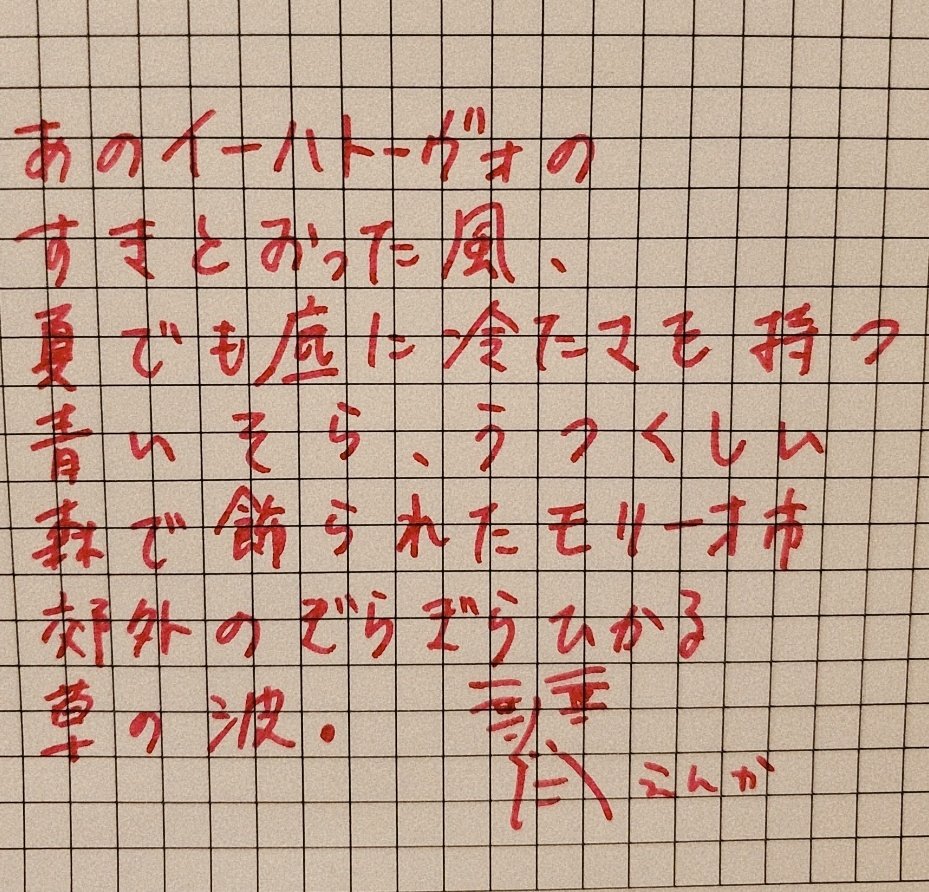 あのイーハトーヴォの
すきとおった風、
夏でも底に冷たさを持つ
青いそら、うつくしい
森で飾られたモリーオ市
郊外のぎらぎらひかる
草の波。
えんか